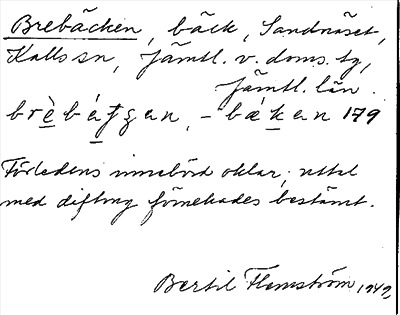 Brebäcken, bäck, Sandnäset,
Kalls sn, Jämtl. v. doms. tg,
Jämtl. län.
brèbátʒen, -bækan 179
Förledens innebörd oklar; uttal
med diftong förnekades bestämt.
Bertil Flemström 1942,